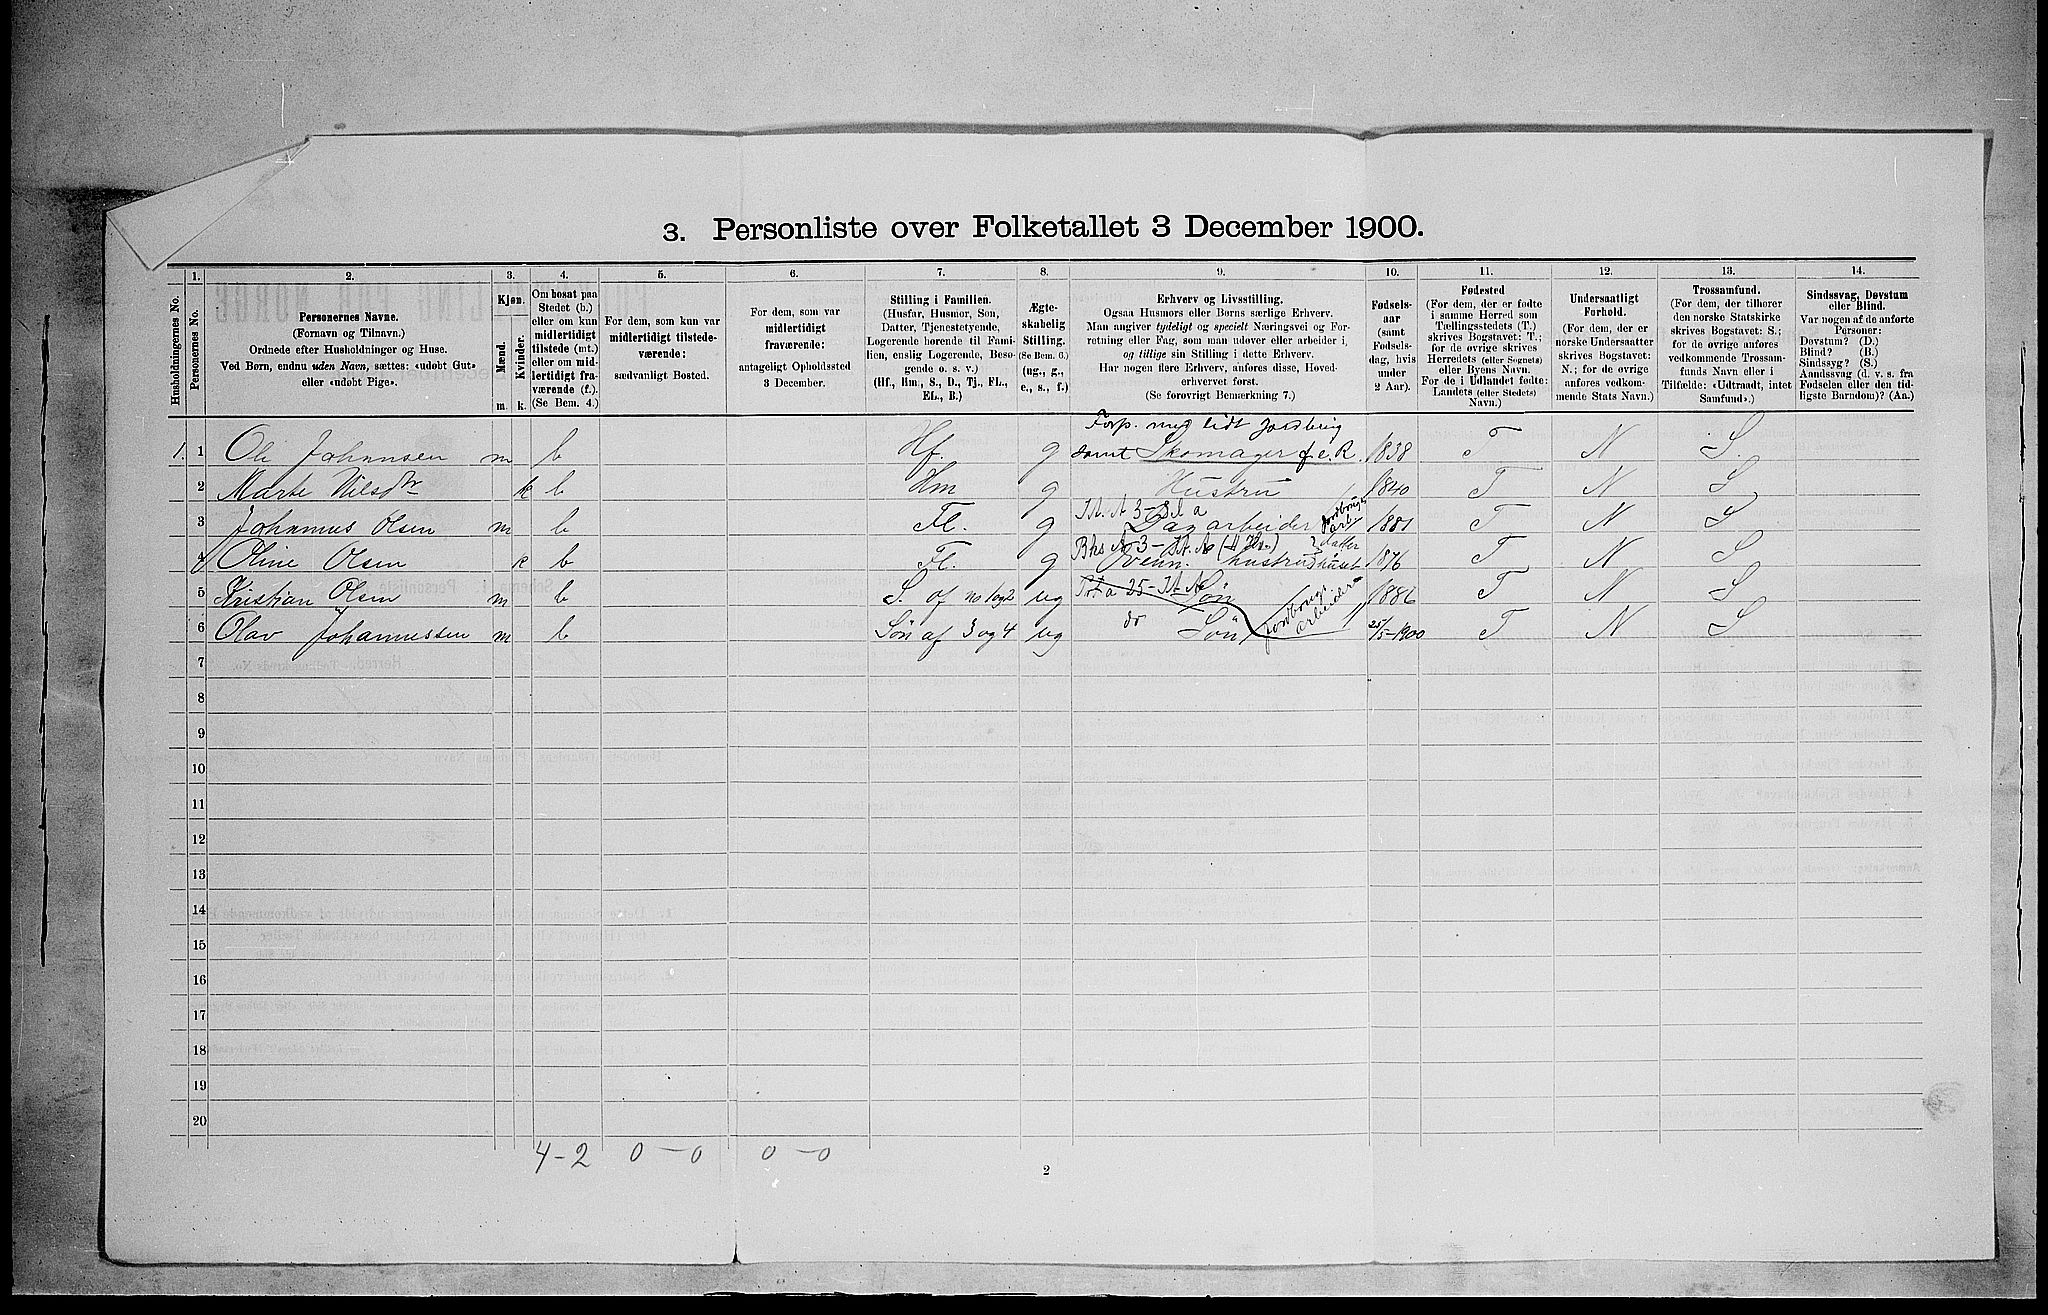 3. Personliste over Folketallet 3 December 1900.
Husholdningernes No.
1.
Personernes No.
2.
Personernes Navne.
(Fornavn og Tilnavn.)
Ordnede efter Husholdninger og Huse.
Ved Børn, endnu uden Navn, sættes: «udøbt Gut»
eller «udøbt Pige».
3.
Kjøn.
Mænd.
m.
Kvinder.
k.
4.
Om bosat paa
Stedet (b.)
eller om kun
midlertidigt
tilstede (mt.)
eller om mid-
lertidigt fra-
værende (f.).
(Se Bem. 4.)
5.
For dem, som kun var
midlertidigt tilstede-
værende:
sædvanligt Bosted.
6.
For dem, som var
midlertidigt
fraværende:
antageligt Opholdssted
3 December.
7.
Stilling i Familien.
(Husfar, Husmor, Søn,
Datter, Tjenestetyende,
Logerende hørende til Fami-
lien, enslig Logerende, Besø-
gende o. s. v.)
(Hf., Hm., S., D., Tj., FL.,
EL., B.)
8.
Ægte-
skabelig
Stilling.
(Se Bem. 6.)
(ug., g.,
e., s., f.)
9.
Erhverv og Livsstilling.
Ogsaa Husmors eller Børns særlige Erhverv.
Man angiver tydeligt og specielt Næringsvei og For-
retning eller Fag, som man udøver eller arbeider i,
og tillige sin Stilling i dette Erhverv.
Har nogen flere Erhverv, anføres disse, Hoved-
erhvervet først.
(Se forøvrigt Bemærkning 7.)
10.
Fødsels-
aar
(samt
Fødsels-
dag, hvis
under
2 Aar).
11.
Fødested
(For dem, der er fødte
i samme Herred som
Tællingsstedets (T.)
skrives Bogstavet: T.;
for de øvrige skrives
Herredets (eller Sognets)
eller Byens Navn.
For de i Udlandet fødte:
Landets (eller Stedets)
Navn.)
12.
Undersaatligt
Forhold.
(For dem, der er
norske Undersaatter
skrives Bogstavet:
N.; for de øvrige
anføres vedkom-
mende Stats Navn.)
13.
Trossamfund.
(For dem, der tilhører
den norske Statskirke
skrives Bogstavet: S.;
for de øvrige anføres
vedkommende Trossam-
funds Navn eller i
Tilfælde: «Udtraadt, intet
Samfund».)
14.
Sindssvag, Døvstum
eller Blind.
Var nogen af de anførte
Personer:
Døvstum? (D.)
Blind? (B.)
Sindssyg? (S.)
Aandssvag (d. v. s. fra
Fødselen eller den tid-
ligste Barndom)? (Aa.)
Forp. med lidt Jordbrug
1. 1 Ole Johannsen m b Hf. g samt Skomager f.e.R. 1838 T N S.
2 Marte Nilsdtr k b Hm g Hustru 1840 T N S
3 Johannus Olsen m b Fl. g Dagarbeider jordbrugs arb. 1881 T N S
4 Oline Olsen k b Fl. g hustru datter huset 1876 T N S
5 Kristian Olsen m b S. af no 1og2 ug Søn 1886 T N S
6 Olav Johannessen m b Søn af 3 og 4 ug do Søn jordbrugs arbeidere 25/5-1900 T N S
7
8
9
10
11
12
13
14
15
16
17
18
19
20
4-2 0-0 0-0
2